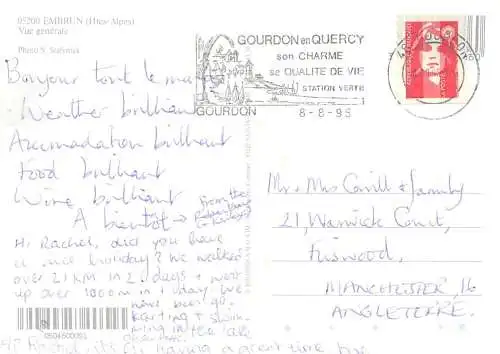 05200 EMBRUN (Htes Alpes)
Vue générale
Photo S.
GOURDON en QUERCY
son CHARME
sa QUALITE DE VIE
STATION VERTE
GOURDON
8-8-95
Bonjour tout le monde
Weather brilliant
Accomodation brilliant
Food brilliant
Wine brilliant
A bientôt → From the
Hi Rachel, did you have
a nice holiday? We walked
over 21 KM in 2 days + went
up over 1000m in 1 day We
have been go-
karting + swim-
ming in the lake
Mr + Mrs + family
21, Warwick Court,
MANCHESTER, 16
ANGLETERRE.
0504500093
Hi Rachel, it's having a great time